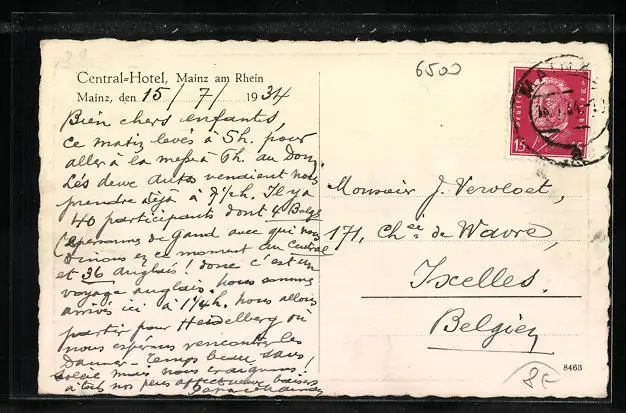 Central-Hotel, Mainz am Rhein
Mainz, den 15/7/1934
Bien chers enfants,
ce matin levés à 5h. pour
aller à la messe à 6h. au Dom.
Les deux autos venaient nous
prendre déjà à 7½h. Il y a
40 participants dont 4 Belges
(2 personnes de Gand avec qui nous
dinons en ce moment au Central
et 36 anglais! donc c'est un
voyage anglais. Nous sommes
arrivés ici à 1¼h. Nous allons
partir pour Heidelberg où
nous espérons rencontrer les
Temps beau sans
soleil mais nous craignons!
à tous nos plus affectueux baisers
6500
15
Monsieur J. Vervloet,
171, Chée de Wavre,
Ixelles.
Belgien
8463